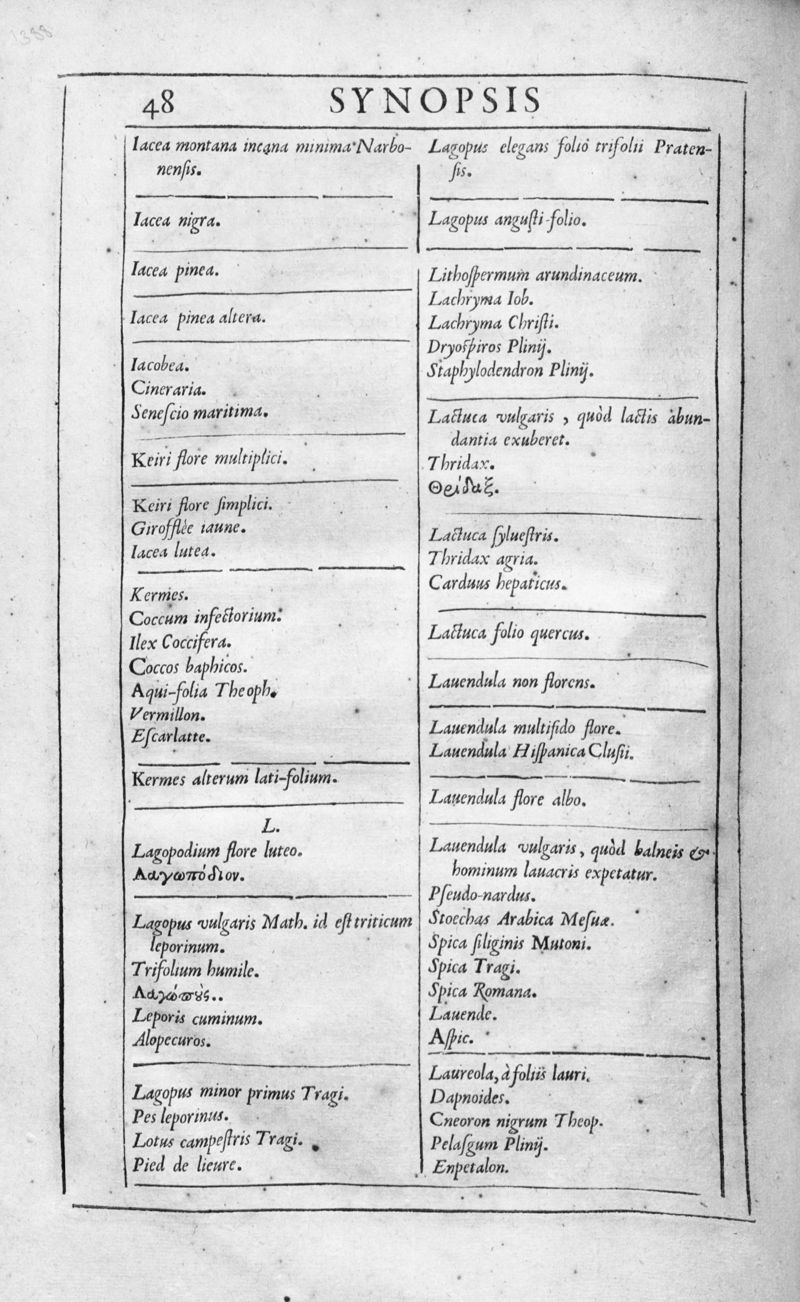 1388
48 SYNOPSIS
Iacea montana incana minima Narbo-
nensis.
Iacea nigra.
Iacea pinea.
Iacea pinea altera.
Iacobea.
Cineraria.
Senescio maritima.
Keiri flore multiplici.
Keiri flore simplici.
Girofflée iaune.
Iacea lutea.
Kermes.
Coccum infectorium.
Ilex Coccifera.
Coccos baphicos.
Aqui-folia Theoph.
Vermillon.
Escarlatte.
Kermes alterum lati-folium.
L.
Lagopodium flore luteo.
Λαγωπόδιον.
Lagopus vulgaris Math. id est triticum
leporinum.
Trifolium humile.
Λαγώπȣς..
Leporis cuminum.
Alopecuros.
Lagopus minor primus Tragi.
Pes leporinus.
Lotus campestris Tragi.
Pied de lieure.
Lagopus elegans folio trifolii Praten-
sis.
Lagopus angusti-folio.
Lithospermum arundinaceum.
Lachryma Iob.
Lachryma Christi.
Dryospiros Plinij.
Staphylodendron Plinij.
Lactuca vulgaris, quòd lactis abun-
dantia exuberet.
Thridax.
Θρίδαξ.
Lactuca syluestris.
Thridax agria.
Carduus hepaticus.
Lactuca folio quercus.
Lauendula non florens.
Lauendula multifido flore.
Lauendula Hispanica Clusii.
Lauendula flore albo.
Lauendula vulgaris, quòd balneis &
hominum lauacris expetatur.
Pseudo-nardus.
Stoechas Arabica Mesuæ.
Spica siliginis Mutoni.
Spica Tragi.
Spica Romana.
Lauende.
Aspic.
Laureola, à foliis lauri.
Dapnoides.
Cneoron nigrum Theop.
Pelasgum Plinij.
Enpetalon.